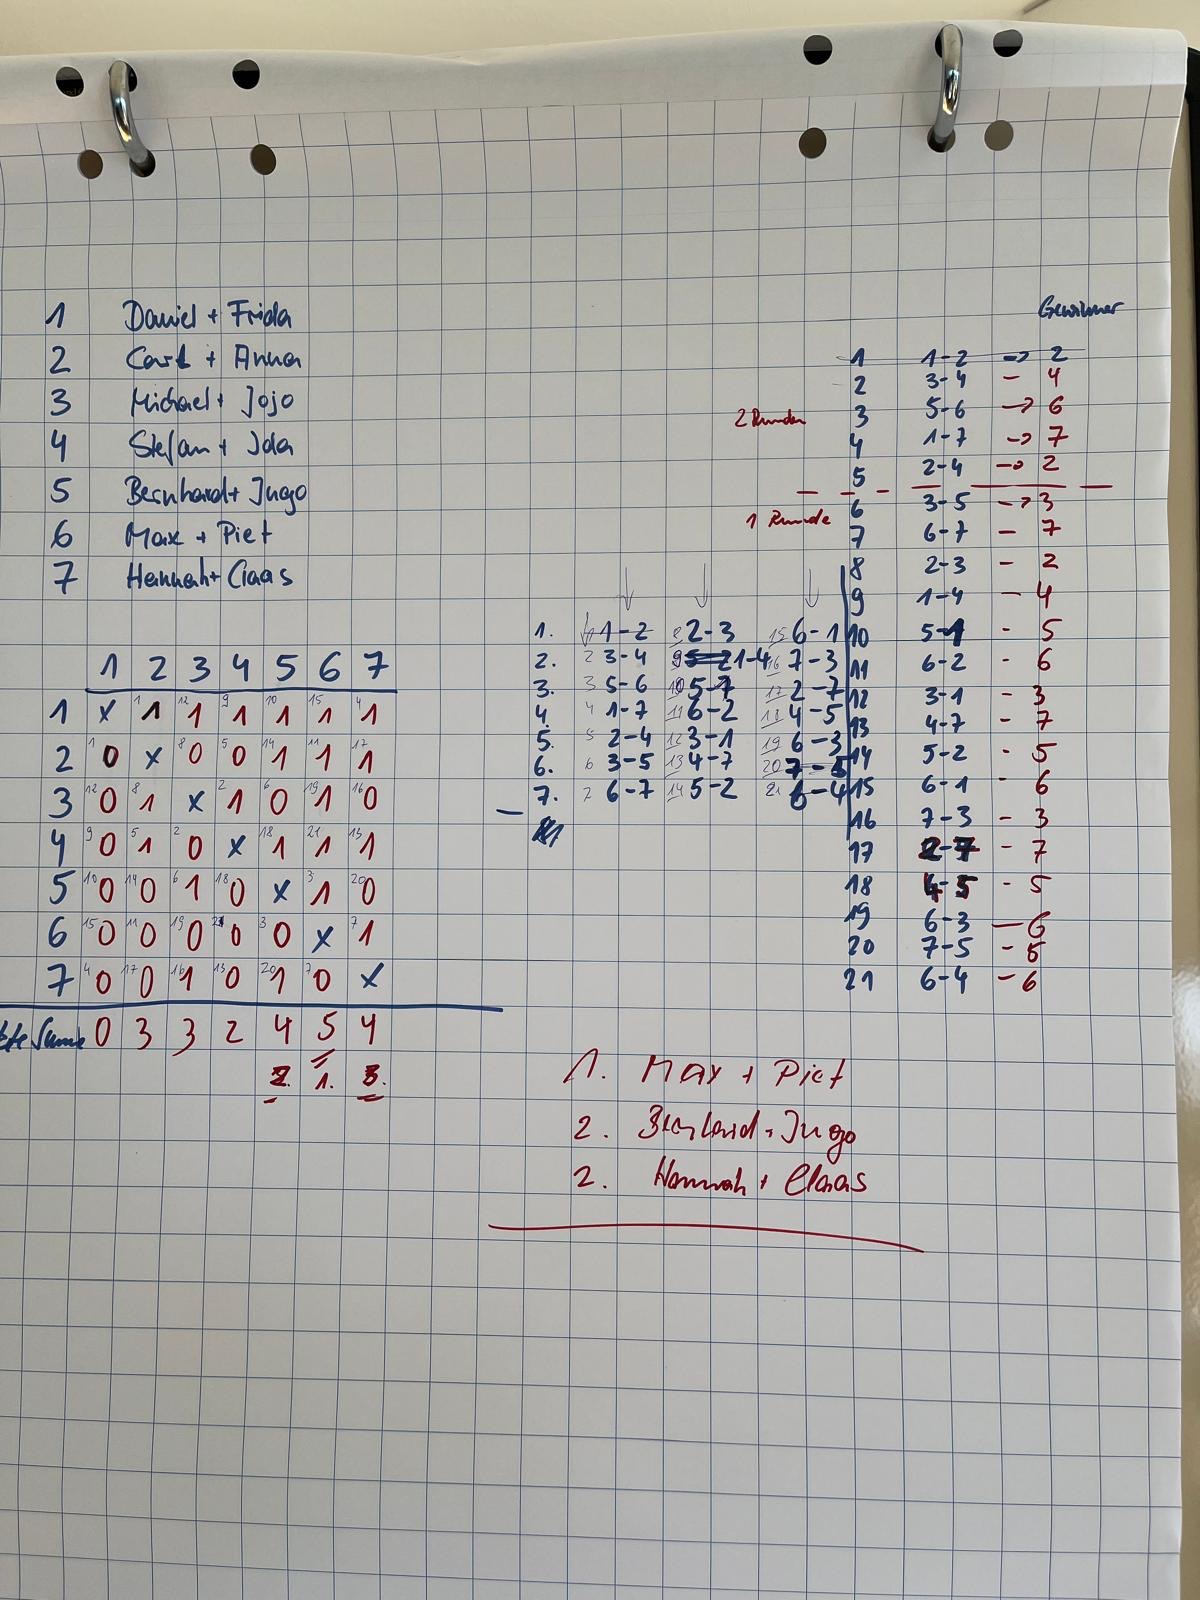 1 Daniel + Frida
2 Carl + Anna
3 Michael + Jojo
4 Stefan + Ida
5 Bernhard + Jngo
6 Max + Piet
7 Hannah + Claas
1 2 3 4 5 6 7
1 x 1 1 1 1 1 1
2 0 x 0 0 1 1 1
3 0 1 x 1 0 1 0
4 0 1 0 x 1 1 1
5 0 0 1 0 x 1 0
6 0 0 0 0 0 x 1
7 0 0 1 0 1 0 x
Summe 0 3 3 2 4 5 4
2. 1. 3.
1. 1 - 2 8 2 - 3 15 6 - 1
2. 2 3 - 4 9 1 - 4 16 7 - 3
3. 3 5 - 6 10 5 - 1 17 2 - 7
4. 4 1 - 7 11 6 - 2 18 4 - 5
5. 5 2 - 4 12 3 - 1 19 6 - 3
6. 6 3 - 5 13 4 - 7 20 7 - 5
7. 7 6 - 7 14 5 - 2 21 6 - 4
Gewinner
1 1 - 2 -> 2
2 3 - 4 - 4
2 Runden
3 5 - 6 -> 6
4 1 - 7 -> 7
5 2 - 4 -> 2
1 Runde
6 3 - 5 -> 3
7 6 - 7 - 7
8 2 - 3 - 2
9 1 - 4 - 4
10 5 - 1 - 5
11 6 - 2 - 6
12 3 - 1 - 3
13 4 - 7 - 7
14 5 - 2 - 5
15 6 - 1 - 6
16 7 - 3 - 3
17 2 - 7 - 7
18 4 - 5 - 5
19 6 - 3 - 6
20 7 - 5 - 5
21 6 - 4 - 6
1. Max + Piet
2. Bernhard + Jngo
2. Hannah + Claas